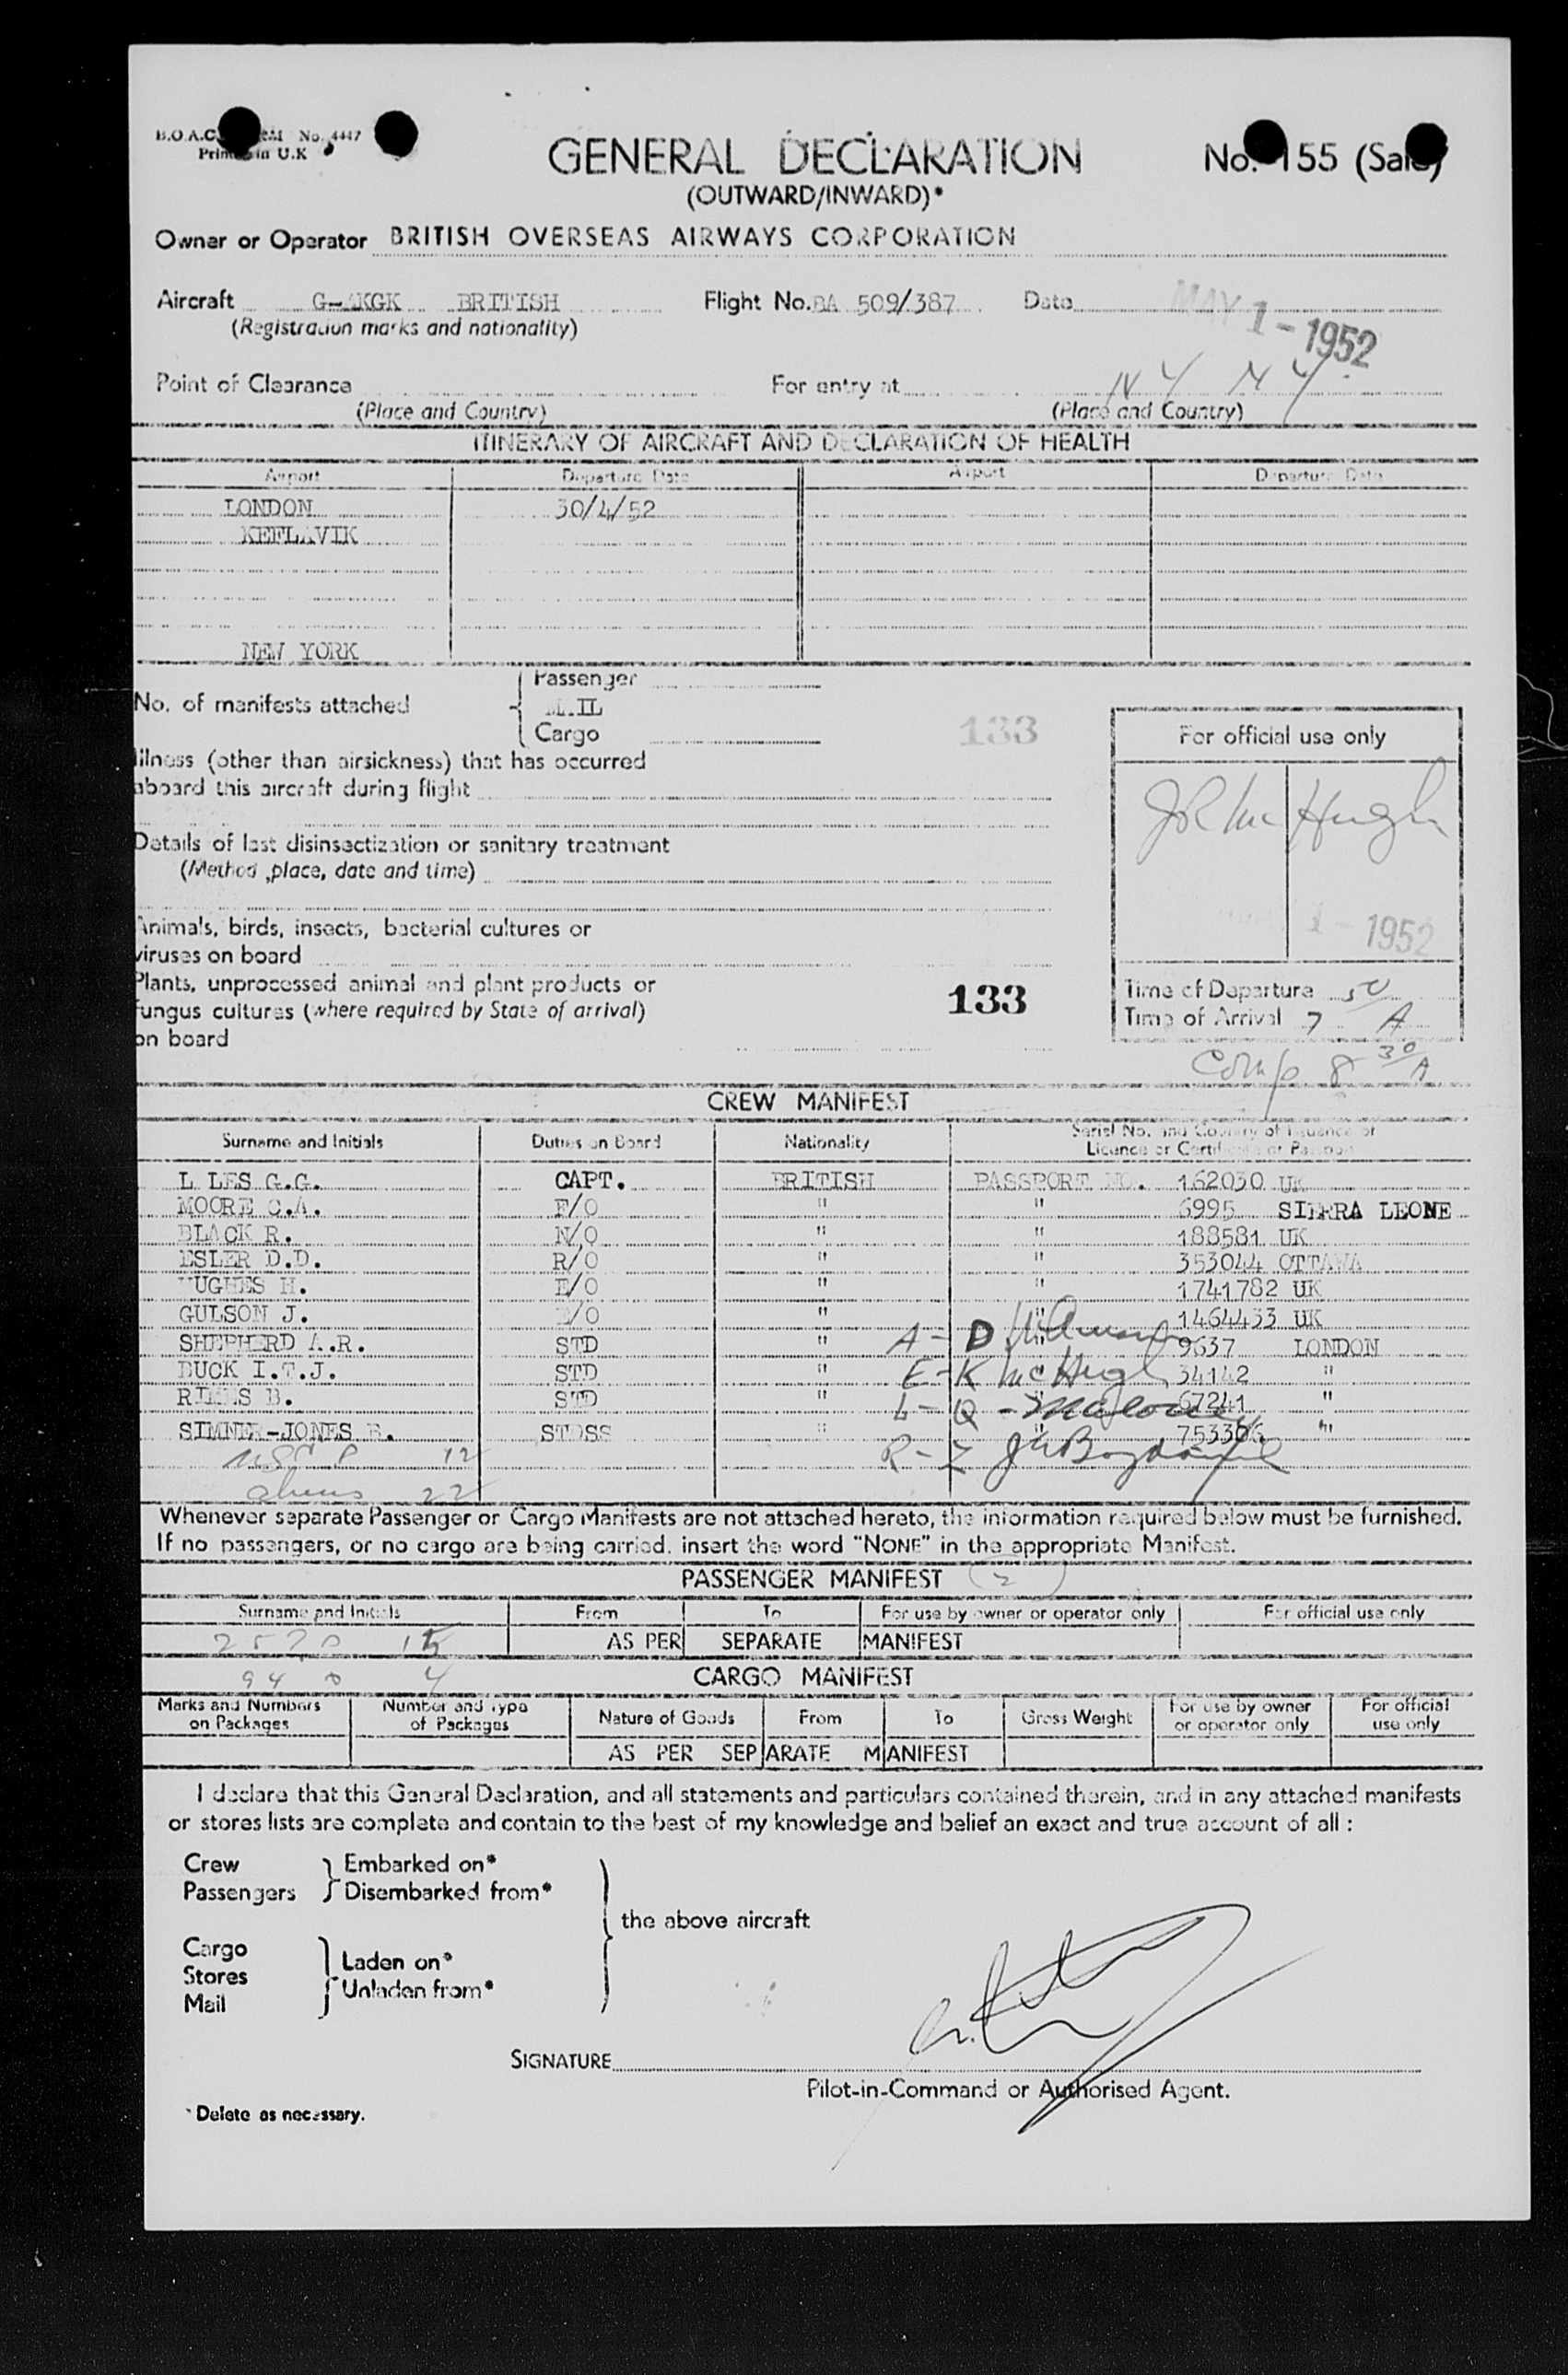 B.O.A.C. No. 4447
in U.K
GENERAL DECLARATION
No. 155 (Sale)
(OUTWARD/INWARD)*
Owner or Operator BRITISH OVERSEAS AIRWAYS CORPORATION
Aircraft G-AKGK BRITISH Flight No. BA 509/387 Date MAY 1 - 1952
(Registration marks and nationality)
Point of Clearance For entry at N Y N Y
(Place and Country) (Place and Country)
ITINERARY OF AIRCRAFT AND DECLARATION OF HEALTH
Airport Departure Date Airport Departure Date
LONDON 30/4/52
KEFLAVIK
NEW YORK
No. of manifests attached
Passenger
MAIL
Cargo
133
For official use only
Illness (other than airsickness) that has occurred
aboard this aircraft during flight
Details of last disinsectization or sanitary treatment
(Method, place, date and time)
McHugh
Animals, birds, insects, bacterial cultures or
viruses on board
1 - 1952
Plants, unprocessed animal and plant products or
fungus cultures (where required by State of arrival)
on board
133
Time of Departure
Time of Arrival 7 50 A
Comp 8 30 A
CREW MANIFEST
Surname and Initials Duties on Board Nationality Serial No. and Country of Issuance of
Licence or Certificate or Passport
LES G.G. CAPT. BRITISH PASSPORT NO. 162030 UK
MOORE C.A. F/O " " 6995 SIERRA LEONE
BLACK R. N/O " " 188581 UK
ESLER D.D. R/O " " 353044 OTTAWA
HUGHES H. E/O " " 1741782 UK
GULSON J. /O " " 1464433 UK
SHEPHERD A.R. STD " A - D 9637 LONDON
BUCK I.T.J. STD " E - K McHugh 34142 "
B. STD " L - Q - Maloney 67241 "
SIMNER-JONES STDSS " R - Z " "
USC P 12
aliens 22
Whenever separate Passenger or Cargo Manifests are not attached hereto, the information required below must be furnished.
If no passengers, or no cargo are being carried, insert the word "NONE" in the appropriate Manifest.
PASSENGER MANIFEST (2)
Surname and Initials From To For use by owner or operator only For official use only
AS PER SEPARATE MANIFEST
CARGO MANIFEST
Marks and Numbers on Packages Number and Type of Packages Nature of Goods From To Gross Weight For use by owner or operator only For official use only
AS PER SEPARATE MANIFEST
I declare that this General Declaration, and all statements and particulars contained therein, and in any attached manifests
or stores lists are complete and contain to the best of my knowledge and belief an exact and true account of all :
Crew
Passengers
Embarked on*
Disembarked from*
the above aircraft
Cargo
Stores
Mail
Laden on*
Unladen from*
SIGNATURE
Pilot-in-Command or Authorised Agent.
*Delete as necessary.